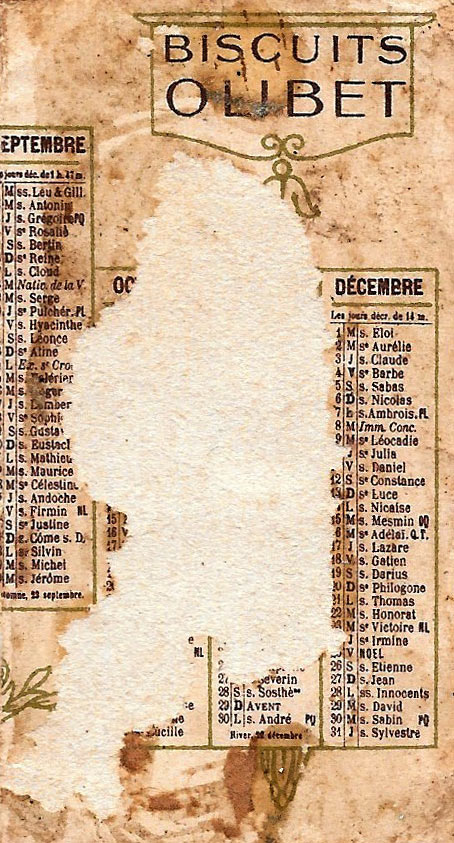 BISCUITS
OLIBET
EPTEMBRE
jours déc. de 1 h. 47 m.
M ss. Leu & Gill.
M s. Antonin
J s. Grégoire PQ
V sᵉ Rosalie
S s. Bertin
D sᵉ Reine
L s. Cloud
M Nativ. de la V.
M s. Serge
J sᵉ Pulchér. PL
V s. Hyacinthe
S s. Léonce
D sᵉ Aline
L Ex. sᵉ Cro
M s. Valérier
M s.
J s. Lamber
V sᵉ Sophi
S s. Gusta
D s. Eustacl
L s. Mathieu
M s. Maurice
M sᵉ Célestin
J s. Andoche
V s. Firmin NL
S sᵉ Justine
D s. Côme s. D.
L s. Silvin
M s. Michel
M s. Jérôme
tomne, 23 septembre.
OC
15
16
17
e
NL
se
ne
ucille
27 Séverin
28 S s. Sosthèⁿᵉ
29 D AVENT
30 L s. André PQ
Hiver, 22 décembre
DÉCEMBRE
Les jours décr. de 14 m.
1 M s. Eloi
2 M sᵉ Aurélie
3 J s. Claude
4 V sᵉ Barbe
5 S s. Sabas
6 D s. Nicolas
7 L s. Ambrois. PL
8 M Imm. Conc.
9 M sᵉ Léocadie
J sᵉ Julia
V s. Daniel
12 S sᵉ Constance
13 D sᵉ Luce
L s. Nicaise
15 M s. Mesmin DQ
16 M sᵉ Adélaï. Q.T.
17 J s. Lazare
18 V s. Gatien
19 S s. Darius
20 D sᵉ Philogone
21 L s. Thomas
22 M s. Honorat
23 M sᵉ Victoire NL
J sᵉ Irmine
25 V NOEL
26 S s. Etienne
27 D s. Jean
28 L ss. Innocents
29 M s. David
30 M s. Sabin PQ
31 J s. Sylvestre